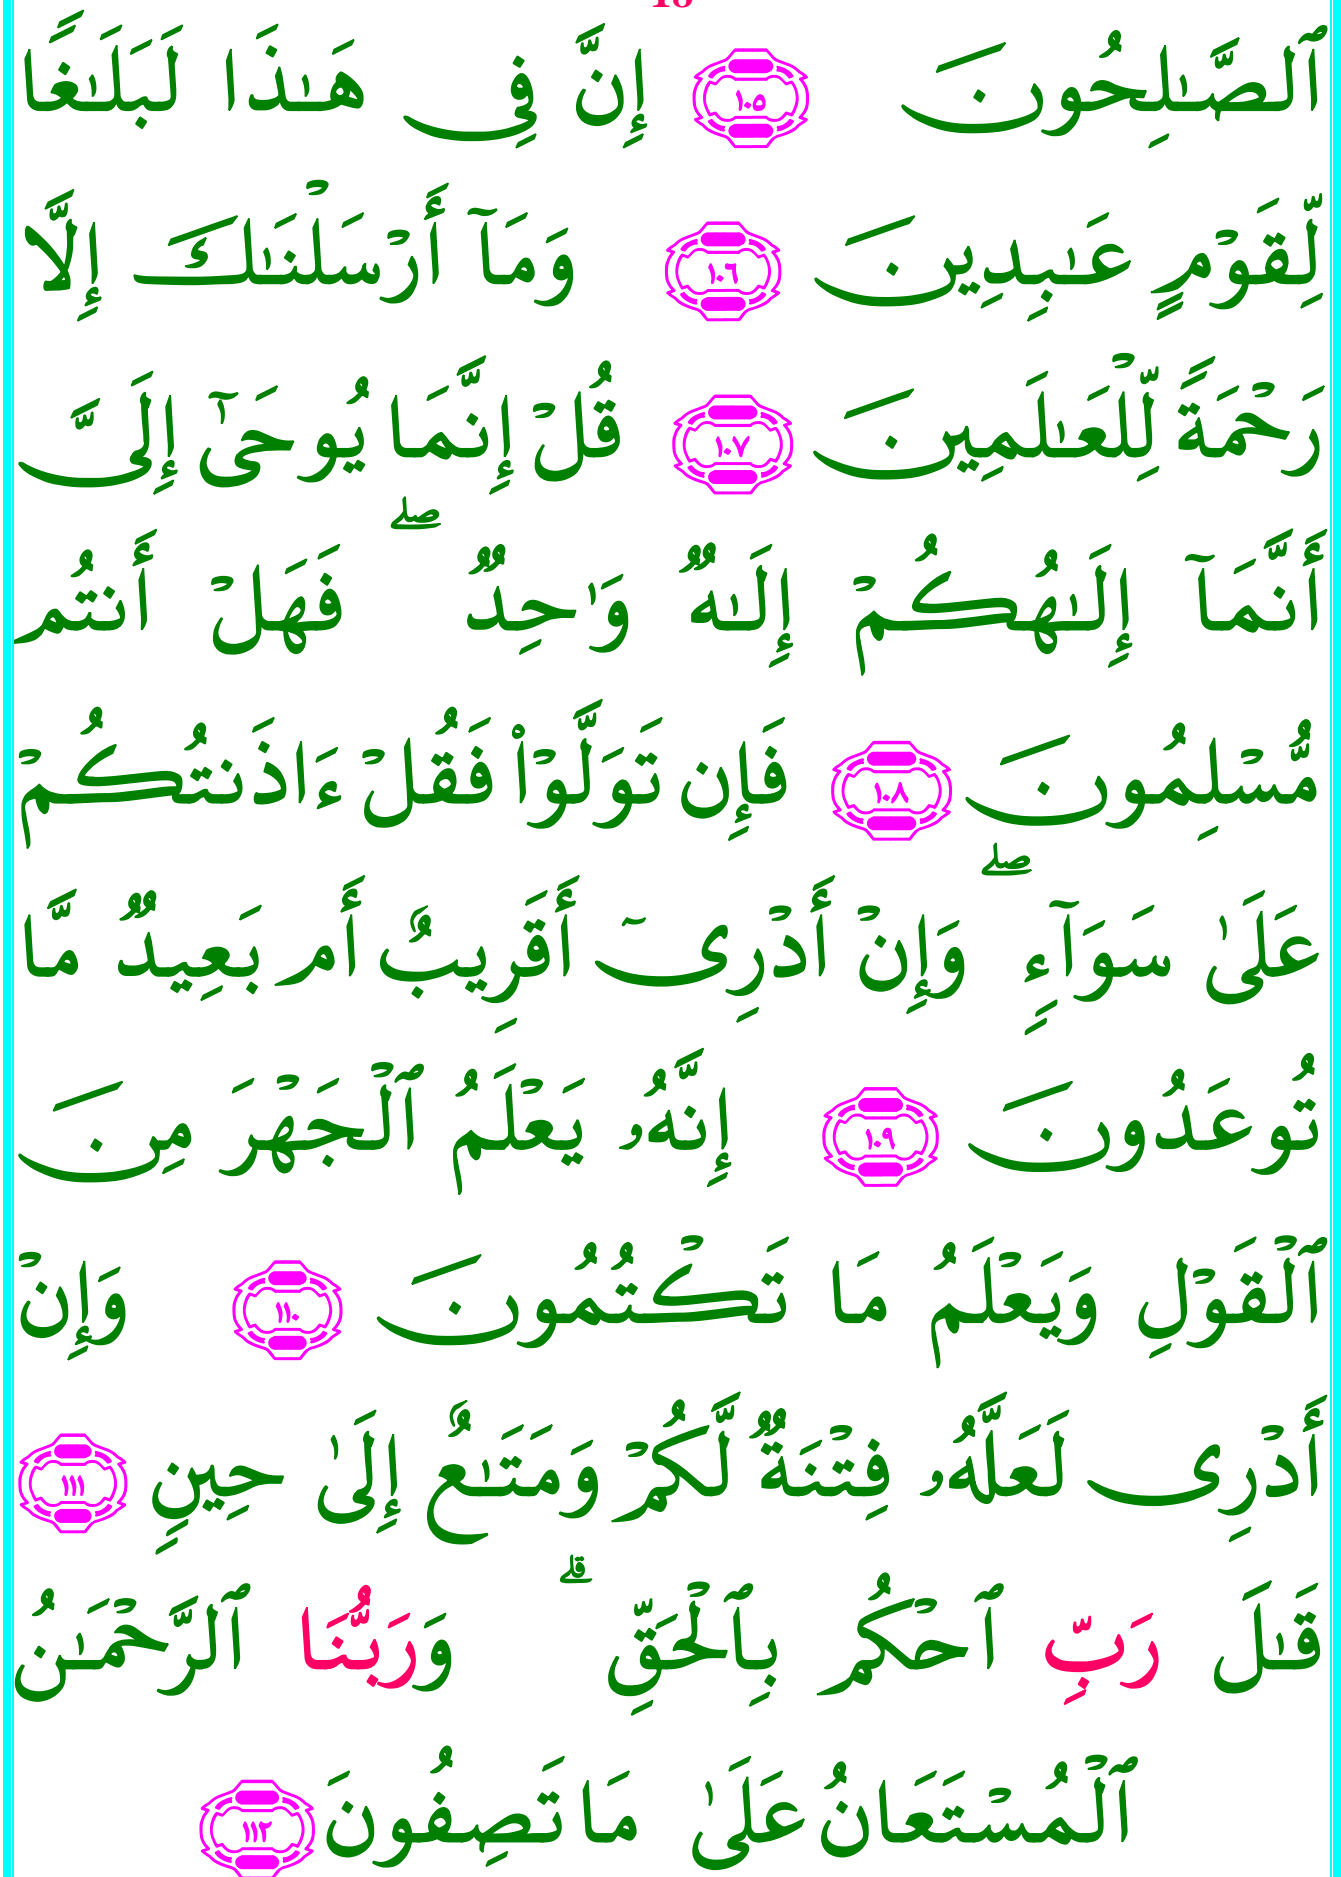 ٱلصَّـٰلِحُونَ ١٠٥ إِنَّ فِى هَـٰذَا لَبَلَـٰغًا
لِّقَوْمٍ عَـٰبِدِينَ ١٠٦ وَمَآ أَرْسَلْنَـٰكَ إِلَّا
رَحْمَةً لِّلْعَـٰلَمِينَ ١٠٧ قُلْ إِنَّمَا يُوحَىٰٓ إِلَىَّ
أَنَّمَآ إِلَـٰهُكُمْ إِلَـٰهٌ وَٰحِدٌ ۖ فَهَلْ أَنتُم
مُّسْلِمُونَ ١٠٨ فَإِن تَوَلَّوْا۟ فَقُلْ ءَاذَنتُكُمْ
عَلَىٰ سَوَآءٍ ۖ وَإِنْ أَدْرِىٓ أَقَرِيبٌ أَم بَعِيدٌ مَّا
تُوعَدُونَ ١٠٩ إِنَّهُۥ يَعْلَمُ ٱلْجَهْرَ مِنَ
ٱلْقَوْلِ وَيَعْلَمُ مَا تَكْتُمُونَ ١١٠ وَإِنْ
أَدْرِى لَعَلَّهُۥ فِتْنَةٌ لَّكُمْ وَمَتَـٰعٌ إِلَىٰ حِينٍ ١١١
قَـٰلَ رَبِّ ٱحْكُم بِٱلْحَقِّ ۗ وَرَبُّنَا ٱلرَّحْمَـٰنُ
ٱلْمُسْتَعَانُ عَلَىٰ مَا تَصِفُونَ ١١٢